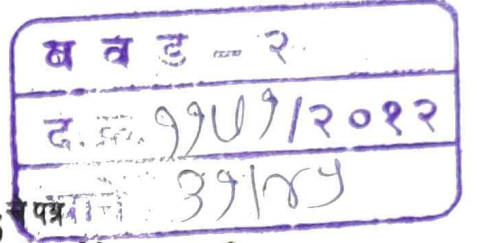 ब व ड - २
द. क्र. ११७१/२०१२
३१/४५
पत्र